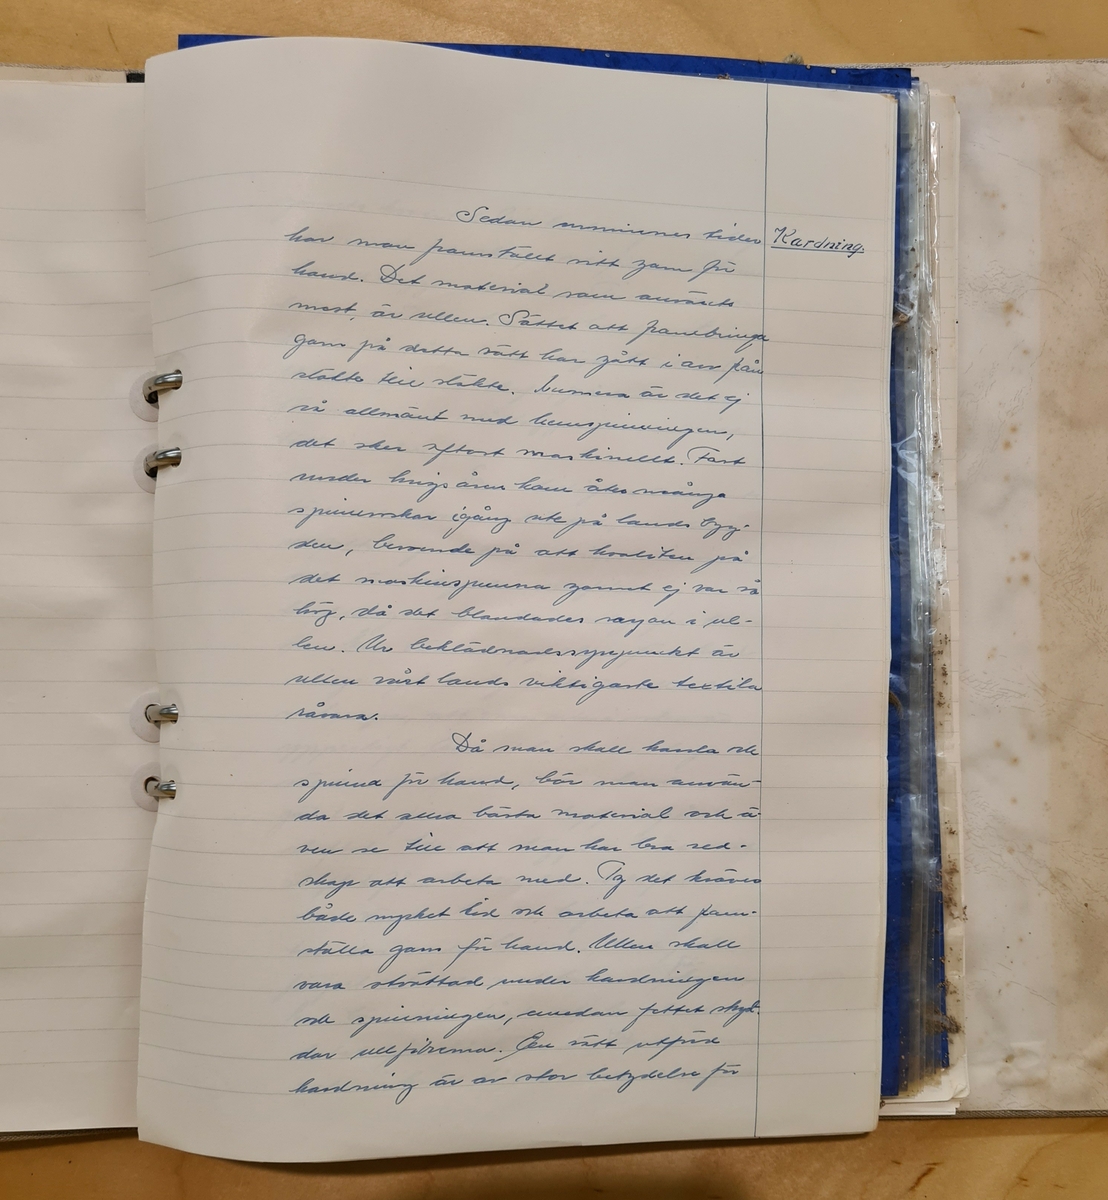 Kardning.
Sedan urminnes tider
har man framställt sitt garn för
hand. Det material som använts
mest, är ullen. Sättet att frambringa
garn på detta sätt har gått i arv från
släkte till släkte. Numera är det ej
så allmänt med hemspinningen,
det sker oftast maskinellt. Fast
under krigsåren kom åter många
spinnrockar igång ute på landsbyg-
den, beroende på att kvaliten på
det maskinspunna garnet ej var så
hög, då det blandades rayon i ul-
len. Ur beklädnadssynpunkt är
ullen vårt lands viktigaste textila
råvara.
Då man skall karda och
spinna för hand, bör man använ-
da det allra bästa material och ä-
ven se till att man har bra red-
skap att arbeta med. Ty det kräves
både mycket tid och arbete att fram-
ställa garn för hand. Ullen skall
vara otvättad under kardningen
och spinningen, emedan fettet skyd-
dar ullfibrerna. En rätt utförd
kardning är av stor betydelse för